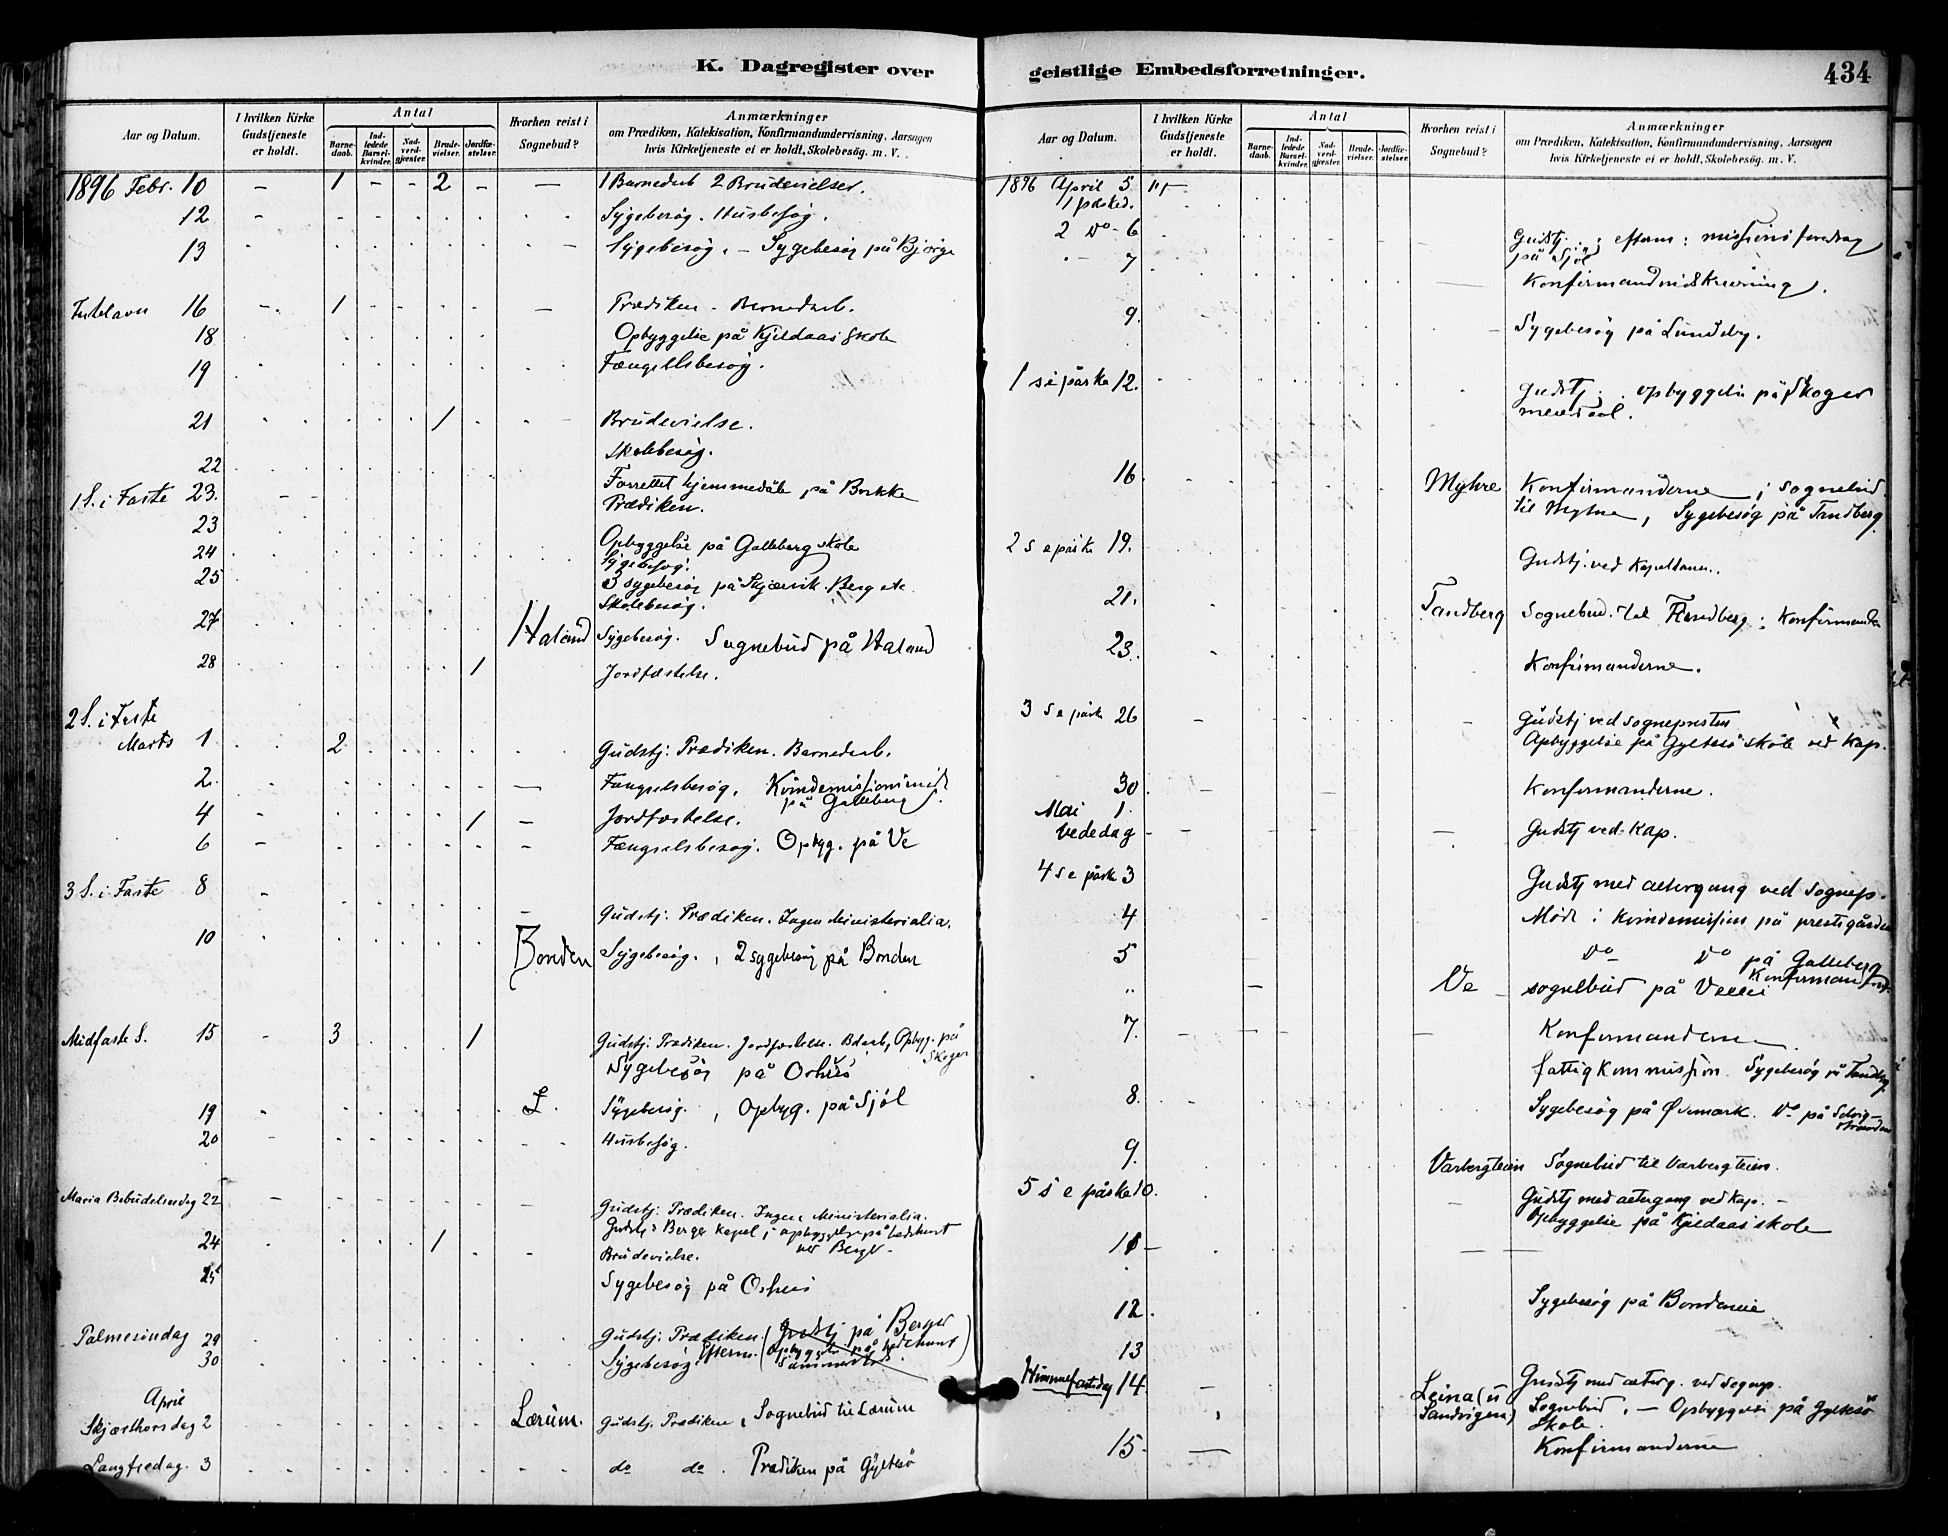 K. Dagregister over
Aar og Datum. I hvilken Kirke Gudstjeneste er holdt. Antal Barnedaab. Indledede Barselkvinder. Nadverdgjester. Brudevielser. Jordfæstelser. Hvorhen reist i Sognebud? Anmærkninger om Prædiken, Katekisation, Konfirmandundervisning, Aarsagen hvis Kirketjeneste ei er holdt, Skolebesøg. m. V.
1896 Febr. 10 – 1 – – 2 – — 1 Barnedaab 2 Brudevielser.
12 Sygebesøg. Husbesøg.
13 Sygebesøg. – Sygebesøg på Bjørge
Fastelavn 16 1 Prædiken – Barnedaab.
18 Opbyggelse på Kjeldaas Skole
19 Fængselsbesøg.
21 1 Brudevielse.
22 Skolebesøg.
1 S. i Faste 23. Forrettet hjemmedåb på Brekke
Prædiken.
23
24 Opbyggelse på Galleberg skole
Sygebesøg.
25 3 sygebesøg på Skjærvik. Berg etc
Skolebesøg.
27 Haland Sygebesøg. Sognebud på Haland
28 1 Jordfæstelse.
2 S. i Faste
Marts 1 2 Gudstj: Prædiken. Barnedaab.
2 Fængselsbesøg.
på Galleberg
4 1 Jordfæstelse.
6 Fængselsbesøg. Opbyg. på Ve
3 S. i Faste 8 Gudstj: Prædiken. Ingen Ministerialia.
10 Bonden Sygebesøg. , 2 sygebesøg på Bonden
Midfaste S. 15 3 1 Gudstj: Prædiken. Jordfæstelse. Opbyg. på Skoger
Sygebesøg på
19 Sygebesøg. , Opbyg. på Sjøl
20 Husbesøg.
Maria Bebudelsesdag 22 Gudstj: Prædiken. Ingen Ministerialia.
Gudstj i Berger Kapel; opbyggelse på bedehuset
ved Berger
24 1 Brudevielse.
25 Sygebesøg på
Palmesøndag 29 Gudstj: Prædiken. (Gudstj på Berger
Opbyggelse på bedehuset)
30 Sygebesøg. Efterm.
April
Skjærthorsdag 2 Lærum. Gudstj. Prædiken, Sognebud til Lærum
Langfredag. 3 do do. Prædiken på Gyltesø
geistlige Embedsforretninger. 434
Aar og Datum. I hvilken Kirke Gudstjeneste er holdt. Antal Barnedaab. Indledede Barselkvinder. Nadverdgjester. Brudevielser. Jordfæstelser. Hvorhen reist i Sognebud? Anmærkninger om Prædiken, Katekisation, Konfirmandundervisning, Aarsagen hvis Kirketjeneste ei er holdt, Skolebesøg. m. V.
1896 April 5
1 påsked.
2 do – 6 Gudstj. ; eftern: missionsforedrag
på Sjøl
7 Konfirmandindskrivning.
9. Sygebesøg på Lundeby.
1 s e påske 12. Gudstj. ; opbyggelse på Skoger
16 Myhre Konfirmanderne ; sognebud
til Myhre, Sygebesøg på Tandberg
2 s e påske 19. Gudstj. ved Kapellanen.
21. Tandberg Sognebud til Tandberg;
23. Konfirmanderne.
3 s e påsk 26 Gudstj ved sogneprsten
Opbyggelse på Gyltesø skole ved Kap.
30 Konfirmanderne.
Mai 1.
Bededag Gudstj ved Kap.
4 s e påsk 3 Gudstj med altergang ved sognep.
4 Møde i Kvindemission på prestegården
5 do do på Galleberg
" Ve sognebud på
7. Konfirmanderne
fattigkommission. Sygebesøg på Tandberg
8. Sygebesøg på Øvemark. do på Selvigstranden
9. Varbergteien Sognebud til Varbergteien.
5 s e påske 10. Gudstj med altergang ved Kap. –
Opbyggelse på Kjeldaas skole
11
12 Sygebesøg på
13
Himmelfartsdag 14 Gudstj med alterg. ved sognep.
Leina (u Sandvigen) Sognebud. – Opbyggelse på Gyltesø
Skole.
15 Konfirmanderne